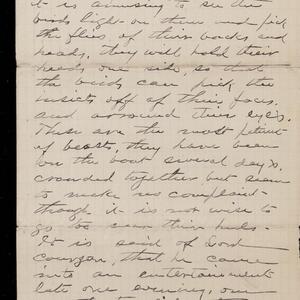 it is amusing to see the
birds light on them and pick
the flies of their backs and
heads, they will hold their
heads one side, so that
the birds can pick the
insicts off of their face
and arround their eyes.
These are the most patient
of beasts, they have been
on the boat several days
crowded together but seem
to make no complaint
though it is not wise to
go too near their heels.
It is said of Lord
Courzon, that he came
into an entertainement
late one evening, our